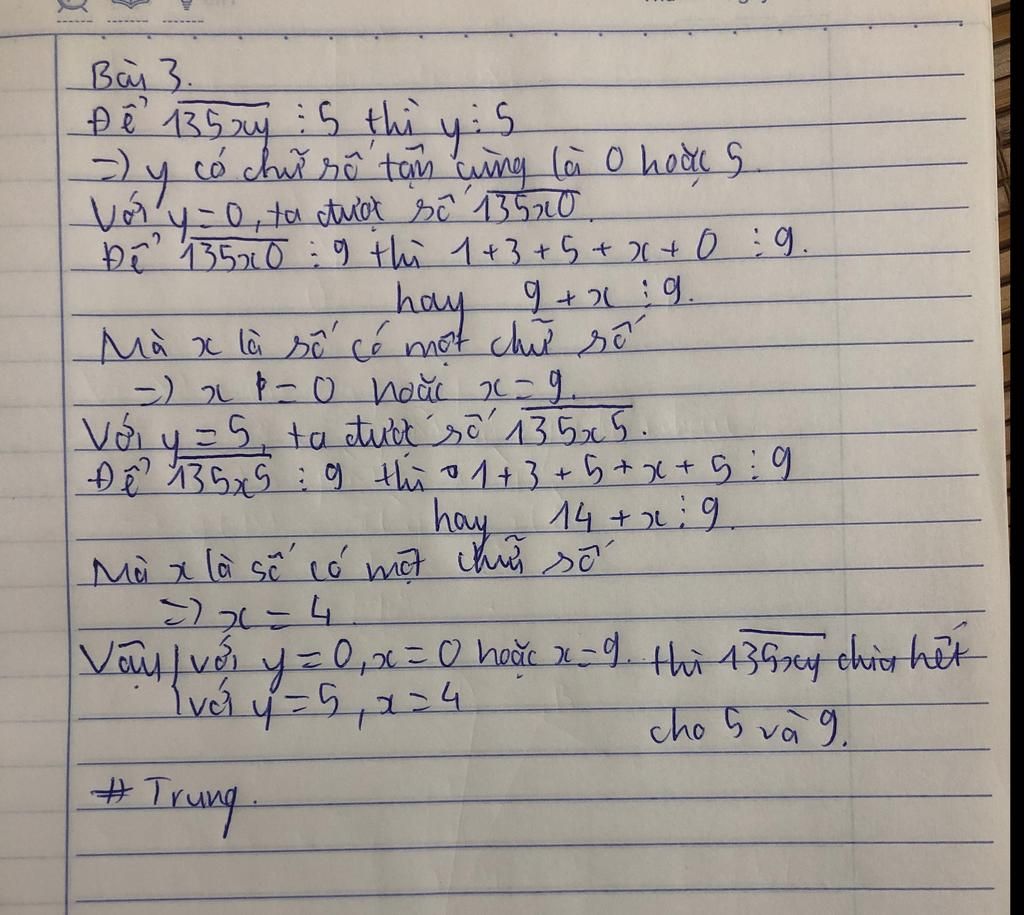 Bài 3.
Để 135xy ⋮ 5 thì y ⋮ 5
=> y có chữ số tận cùng là 0 hoặc 5
Với y = 0, ta được số 135x0.
Để 135x0 ⋮ 9 thì 1 + 3 + 5 + x + 0 ⋮ 9.
hay 9 + x ⋮ 9.
Mà x là số có một chữ số
=> x = 0 hoặc x = 9.
Với y = 5, ta được số 135x5.
Để 135x5 ⋮ 9 thì 1 + 3 + 5 + x + 5 ⋮ 9
hay 14 + x ⋮ 9.
Mà x là số có một chữ số
=> x = 4
Vậy với y = 0, x = 0 hoặc x = 9. thì 135xy chia hết
với y = 5, x = 4
cho 5 và 9.
# Trung.